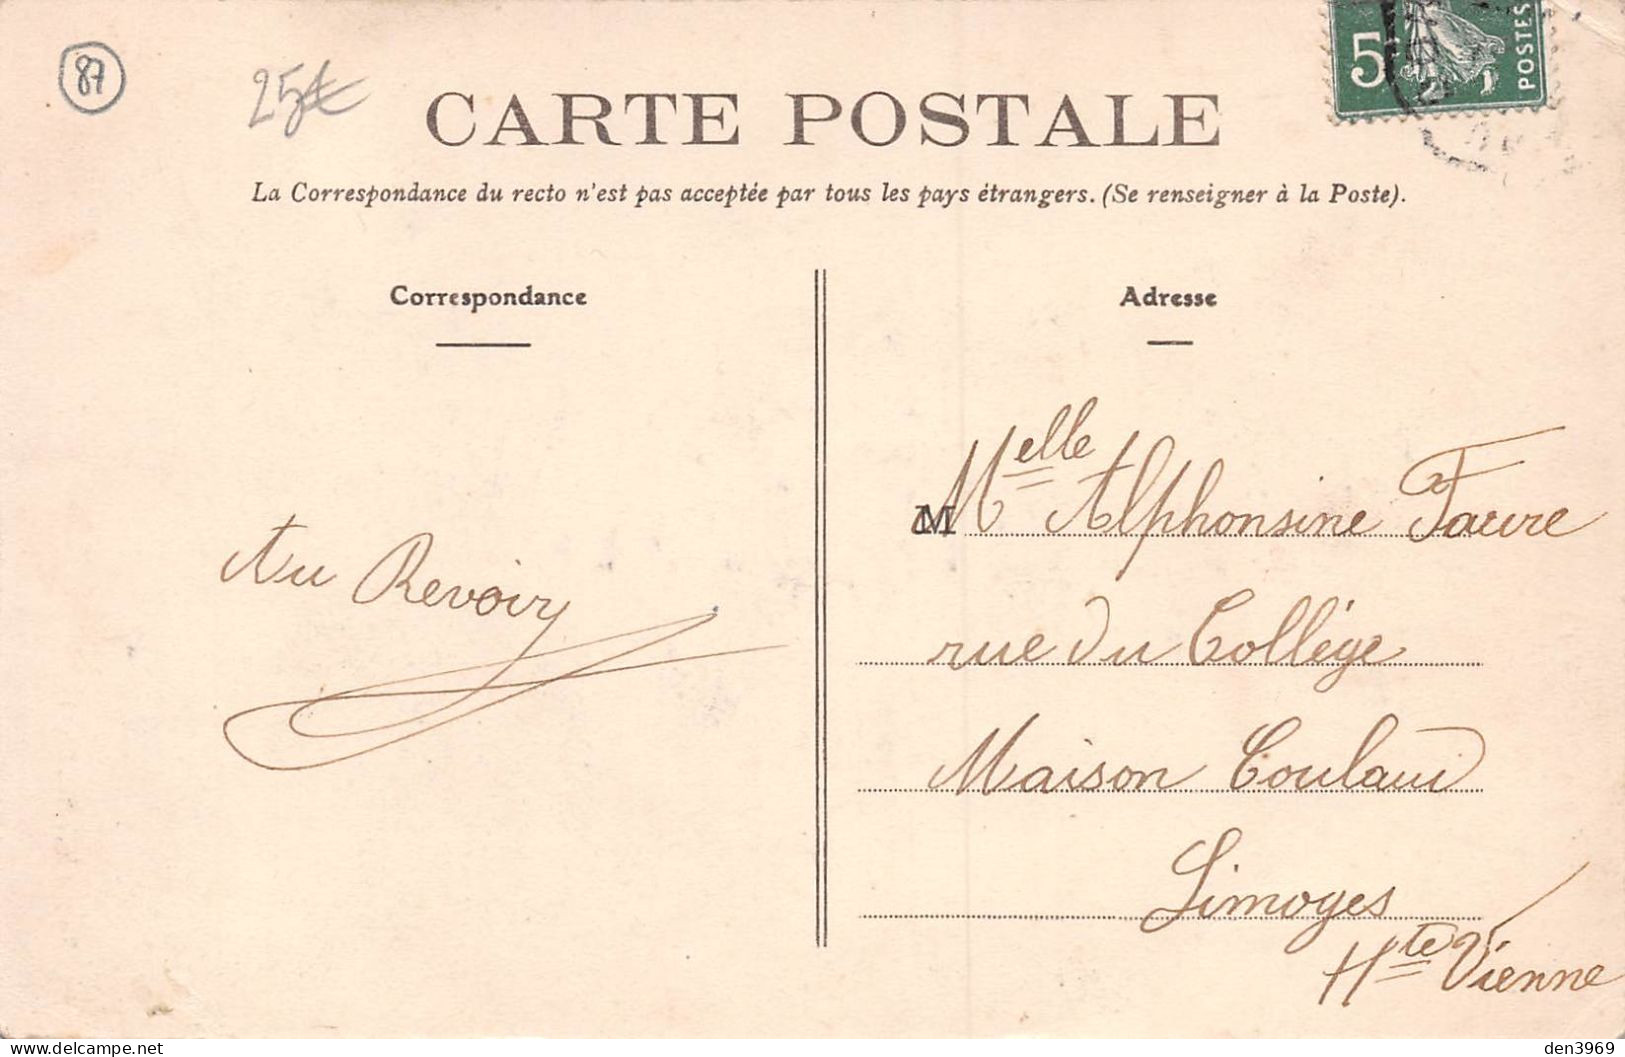 87
25€
CARTE POSTALE
5c
POSTES
La Correspondance du recto n'est pas acceptée par tous les pays étrangers. (Se renseigner à la Poste).
Correspondance
Au Revoir
Adresse
M
Melle Alphonsine Faure
rue du Collège
Maison Coulaud
Limoges
Hte Vienne
den3969